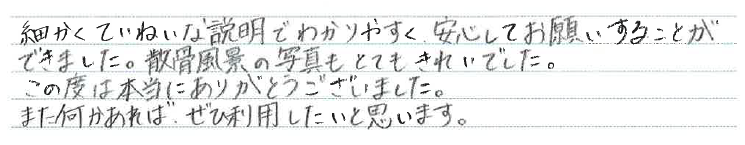 細かくていねいな説明でわかりやすく、安心してお願いすることが
できました。散骨風景の写真もとてもきれいでした。
この度は本当にありがとうございました。
また何かあれば、ぜひ利用したいと思います。